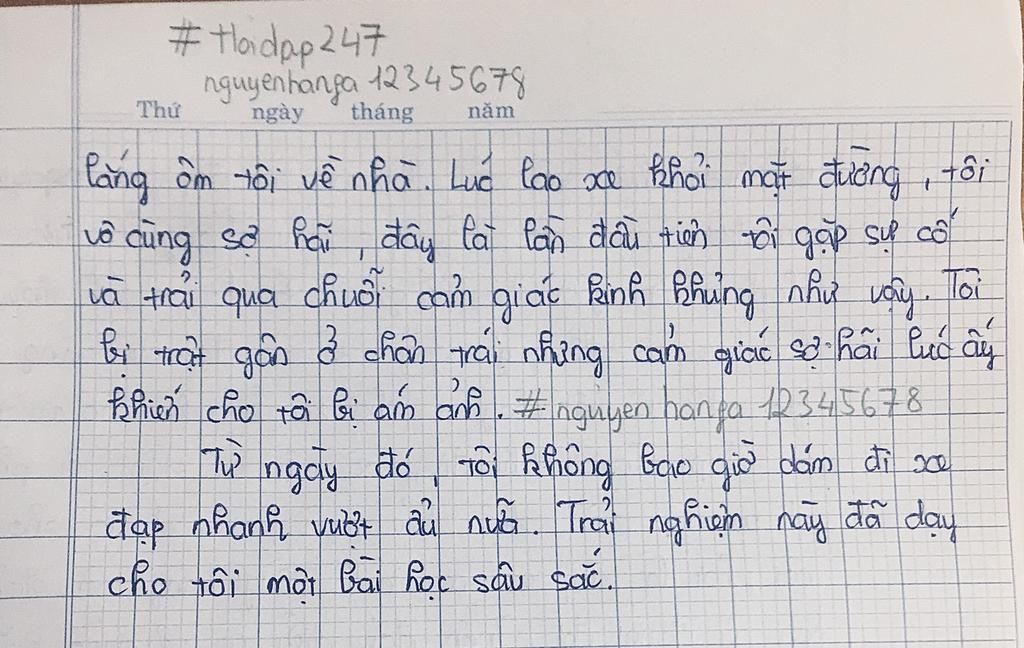 # Hoidap247
nguyenhanga 12345678
Thứ ngày tháng năm
lắng ôm tôi về nhà. Lúc lao xe khỏi mặt đường, tôi
vô cùng sợ hãi, đây là lần đầu tiên tôi gặp sự cố
và trải qua chuỗi cảm giác kinh khủng như vậy. Tôi
bị trật gân ở chân trái nhưng cảm giác sợ hãi lúc ấy
khiến cho tôi bị ám ảnh. #nguyen hanga 12345678
Từ ngày đó, tôi không bao giờ dám đi xe
đạp nhanh vượt ẩu nữa. Trải nghiệm này đã dạy
cho tôi một bài học sâu sắc.